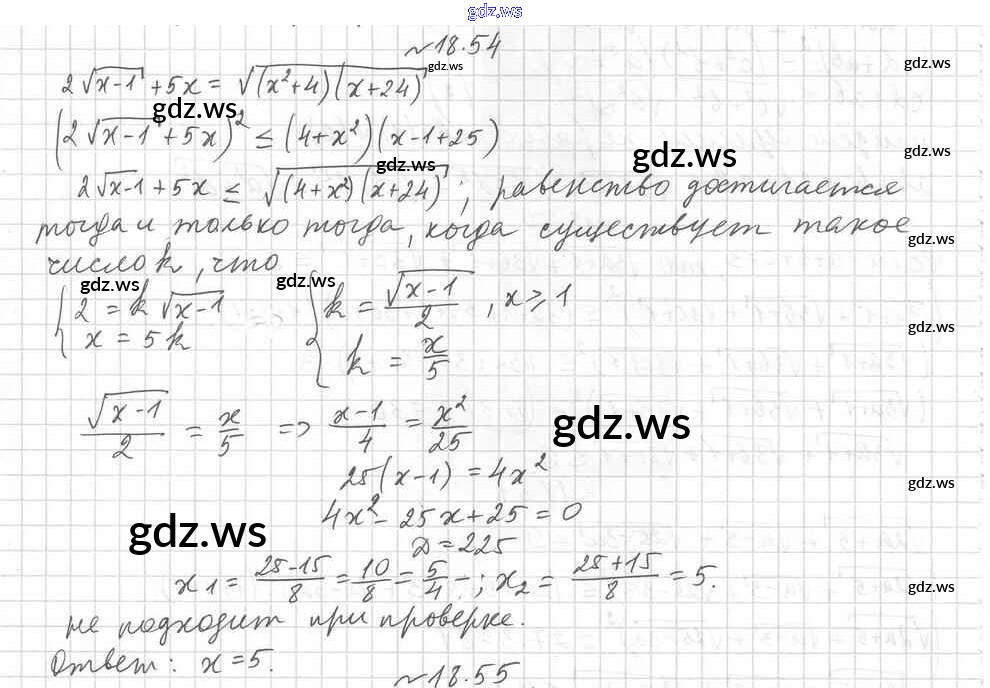 gdz.ws
№18.54
gdz.ws
gdz.ws
2√(x-1) + 5x = √((x²+4)(x+24))
gdz.ws
(2√(x-1) + 5x)² ≤ (4+x²)(x-1+25)
gdz.ws
gdz.ws
gdz.ws
2√(x-1) + 5x ≤ √((4+x²)(x+24)) ; равенство достигается
тогда и только тогда, когда существует такое
gdz.ws
число k, что
gdz.ws
gdz.ws
{ 2 = k√(x-1) { k = √(x-1)/2 , x ≥ 1
x = 5k k = x/5
gdz.ws
√(x-1)/2 = x/5 => (x-1)/4 = x²/25
gdz.ws
25(x-1) = 4x²
gdz.ws
4x² - 25x + 25 = 0
gdz.ws
D = 225
x₁ = (25-15)/8 = 10/8 = 5/4 - ; x₂ = (25+15)/8 = 5.
gdz.ws
не подходит при проверке.
Ответ: x = 5.
№18.55